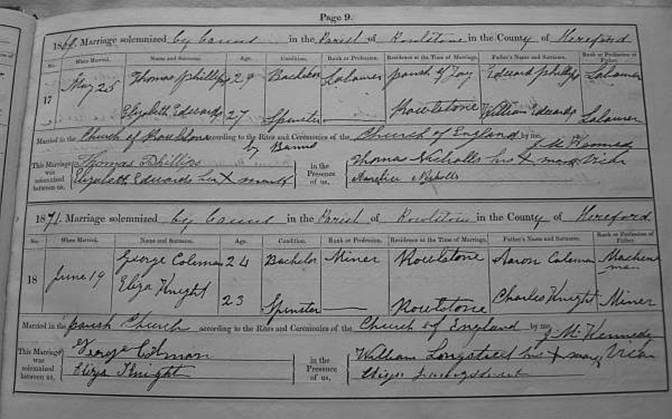 Page 9.
1868. Marriage solemnized by banns in the Parish of Rowlstone in the County of Hereford
No. When Married. Name and Surname. Age. Condition. Rank or Profession. Residence at the Time of Marriage. Father's Name and Surname. Rank or Profession of Father.
17 May 25 Thomas Phillips 29 Bachelor Labourer parish of Edward Phillips Labourer
Elizabeth Edwards 27 Spinster — Rowlstone William Edwards Labourer
Married in the Church of Rowlstone according to the Rites and Ceremonies of the Church of England by me,
by Banns Vicar
This Marriage was solemnized between us, Thomas Phillips in the Presence of us, Thomas Nicholls his X mark
Elizabeth Edwards her X mark Nicholls
1871. Marriage solemnized by banns in the Parish of Rowlstone in the County of Hereford
No. When Married. Name and Surname. Age. Condition. Rank or Profession. Residence at the Time of Marriage. Father's Name and Surname. Rank or Profession of Father.
18 June 19 George Coleman 24 Bachelor Miner Rowlstone Aaron Coleman
Eliza Knight 23 Spinster — Rowlstone Charles Knight Miner
Married in the parish Church according to the Rites and Ceremonies of the Church of England by me, Vicar
This Marriage was solemnized between us, George Colman in the Presence of us, William his X mark
Eliza Knight